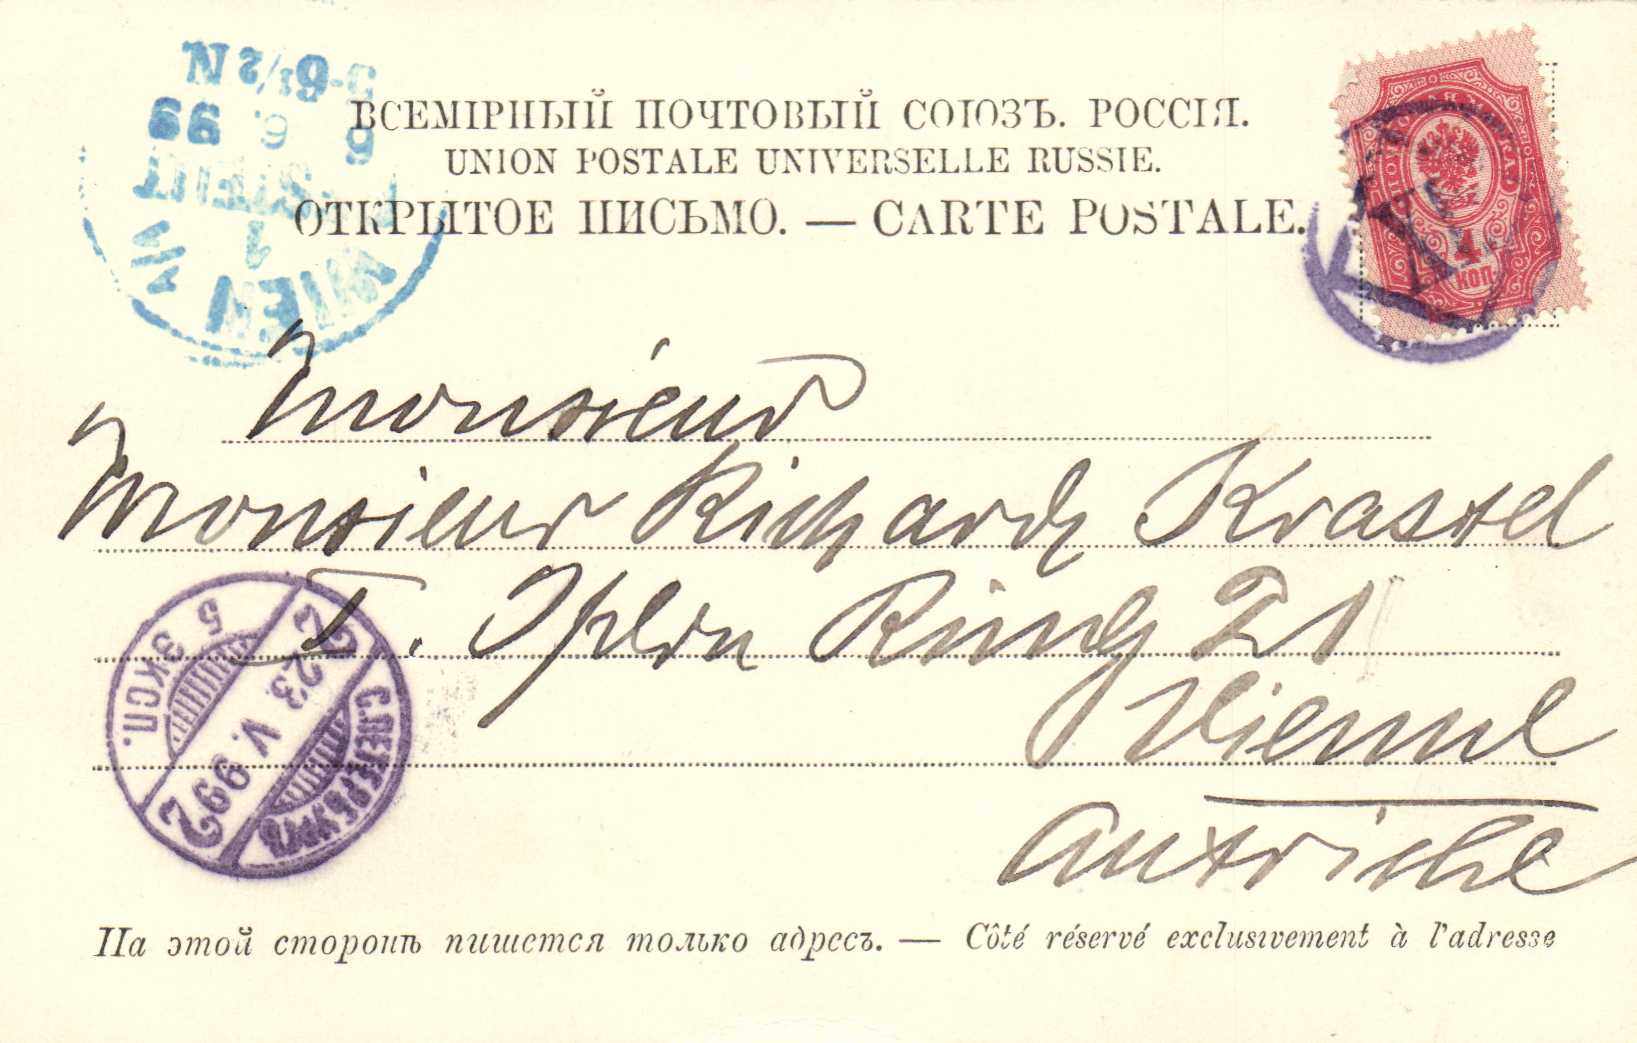 ВСЕМІРНЫЙ ПОЧТОВЫЙ СОЮЗЪ. РОССІЯ.
UNION POSTALE UNIVERSELLE RUSSIE.
ОТКРЫТОЕ ПИСЬМО. — CARTE POSTALE.
WIEN 1/1
1
BESTELLT
6 6. 99
5-6½N
4
КОП
Monsieur
Monsieur Richard Krastel
I. Opern Ring 21
Vienne
Autriche
С.ПЕТЕРБУРГЪ
2 23 V.99 2
5 ЭКСП.
На этой сторонѣ пишется только адресъ. — Côté réservé exclusivement à l'adresse